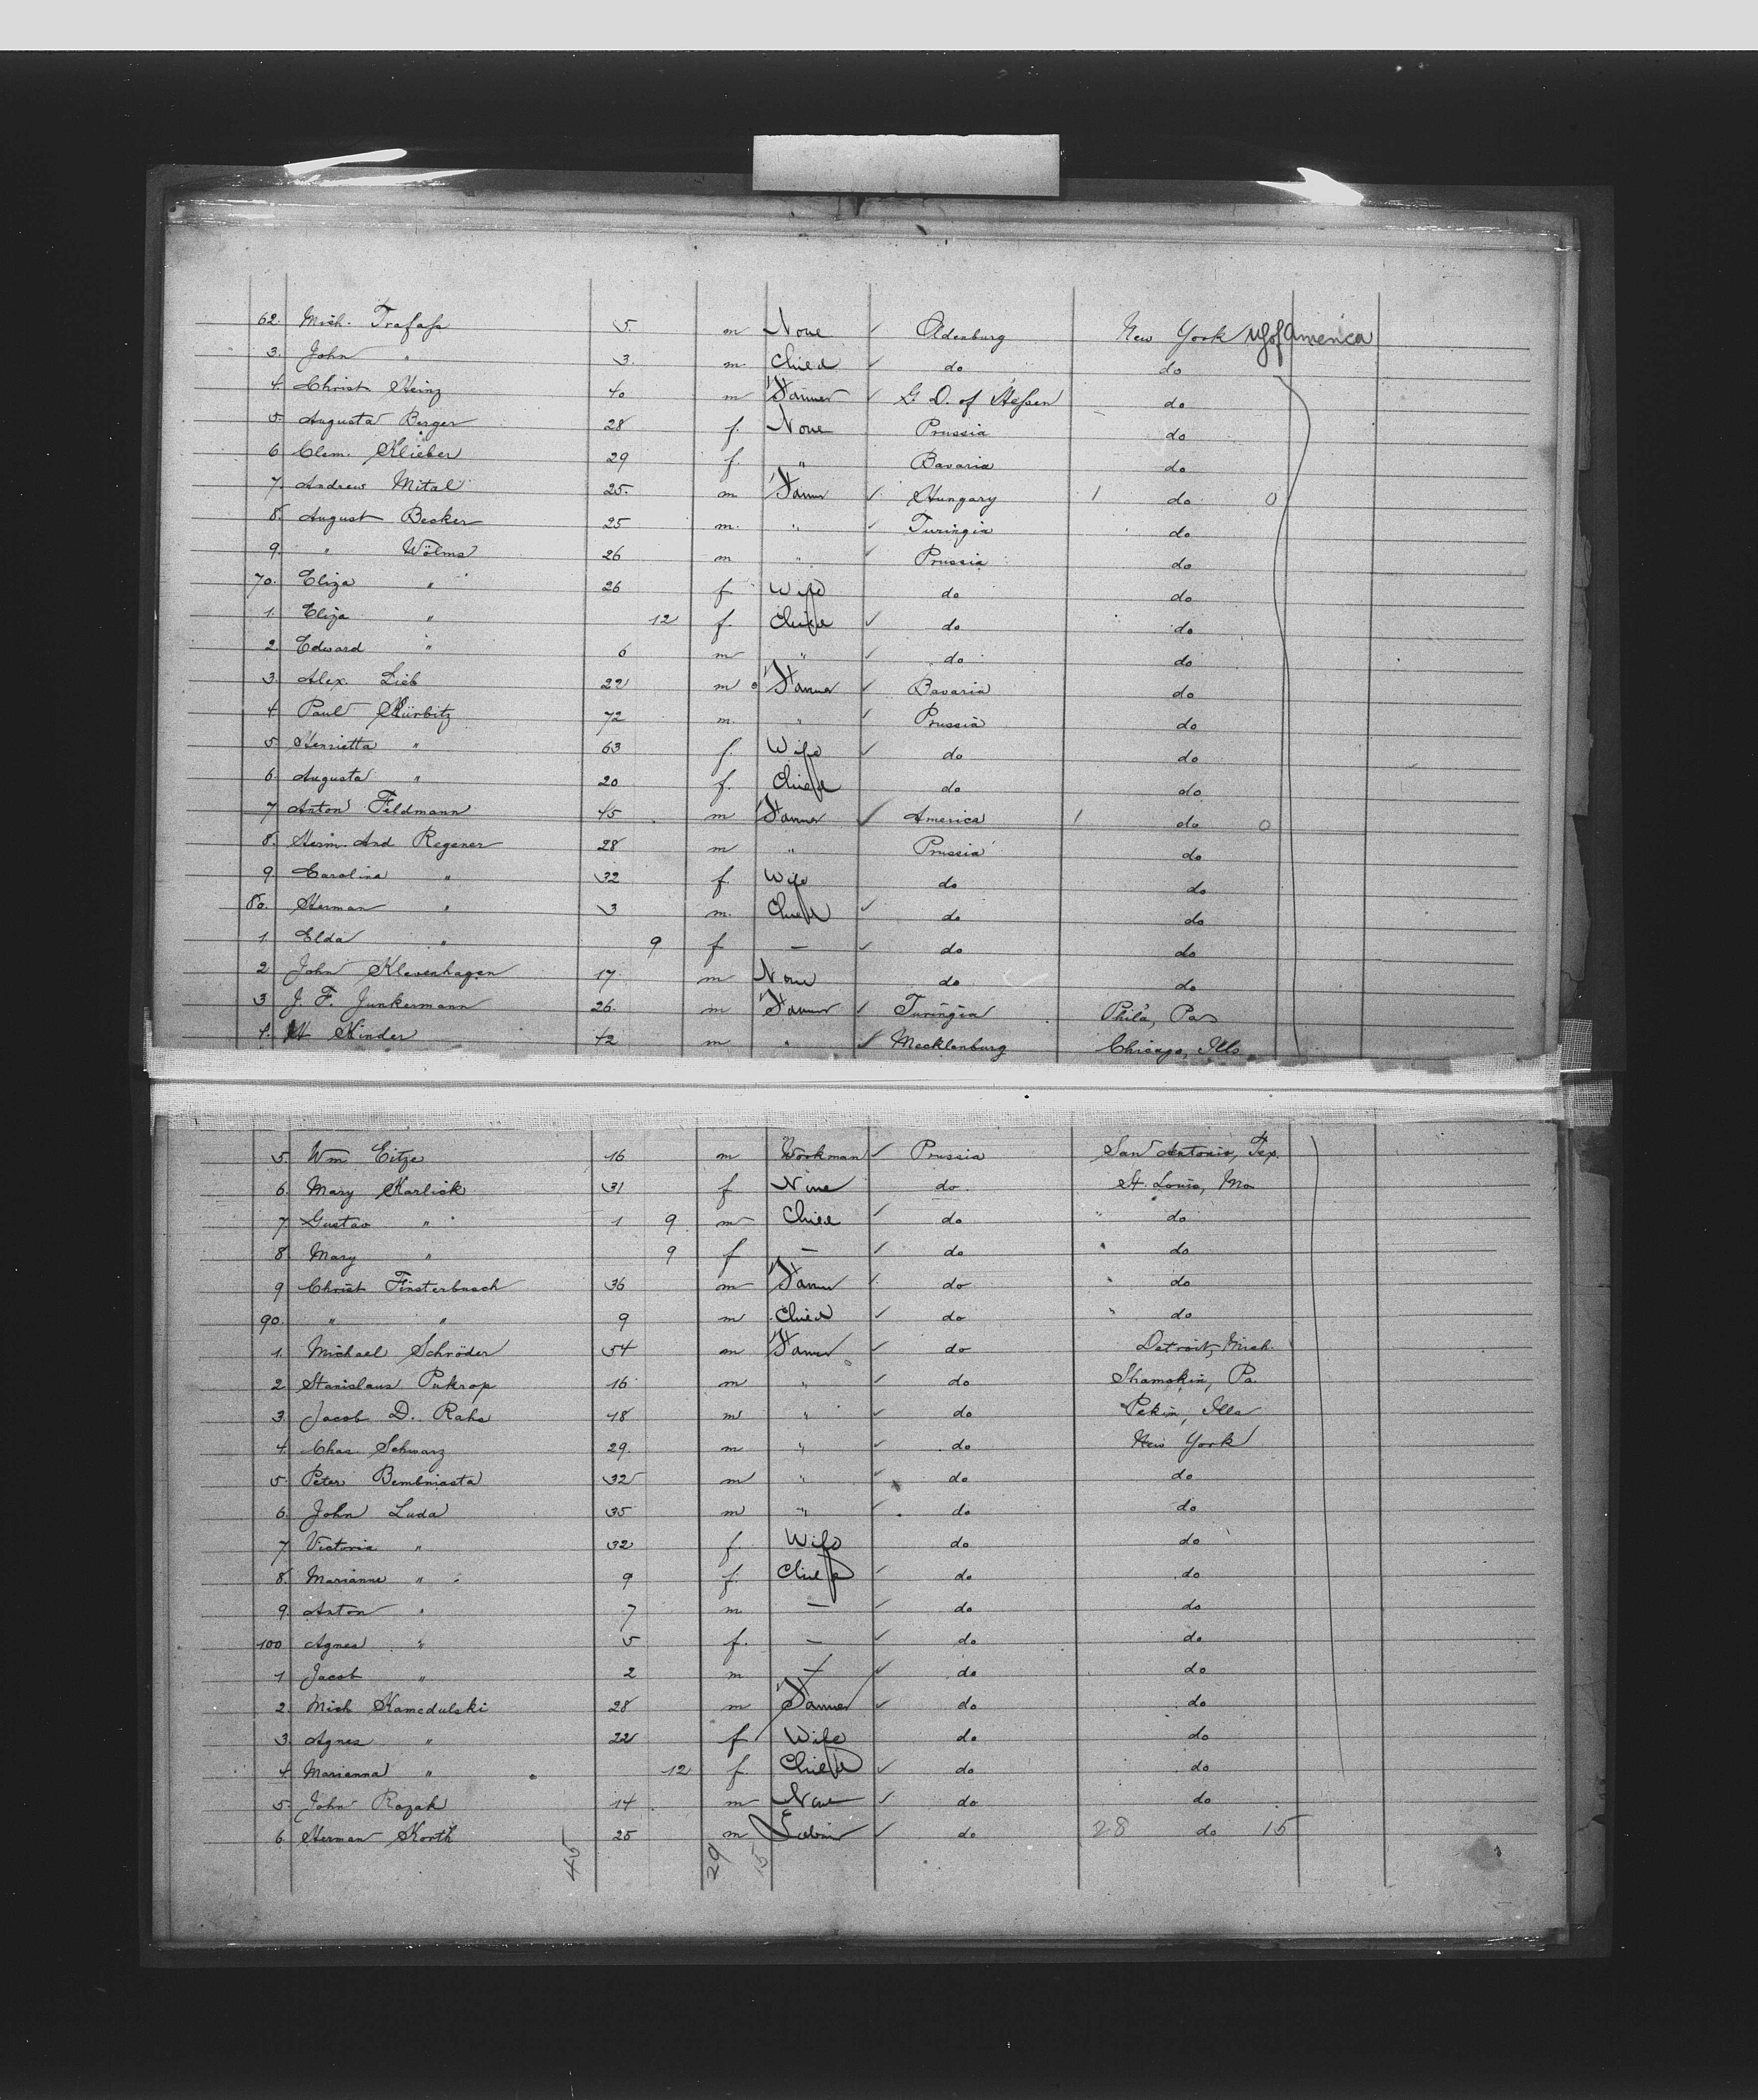 62. Mich. Trafass 5. m None ✓ Oldenburg New York US of America
3. John " 3. m. Child ✓ do do
4. Christ Heinz 40 m Farmer ✓ G. D. of Hessen do
5. Augusta Berger 28 f. None Prussia do
6 Clem. Klieber 29 f. " Bavaria do
7. Andrew Mital 25. m Farmer ✓ Hungary 1 do 0
8. August Becker 25 m. " ✓ Turingia do
9. " Wölms 26 m " ✓ Prussia do
70. Eliza " 26 f Wife do do
1. Eliza " 12 f. Child ✓ do do
2. Edward " 6 m " ✓ do do
3. Alex. Lieb 22 m Farmer ✓ Bavaria do
4. Paul Kürbitz 72 m. " ✓ Prussia do
5. Henrietta " 63 f. Wife ✓ do do
6. Augusta " 20 f. Child do do
7 Anton Feldmann 45 m Farmer ✓ America 1 do 0
8. Herm. And Regener 28 m " Prussia do
9. Carolina " 32 f. Wife do do
80. Herman " 3 m. Child ✓ do do
1. Elda " 9 f — ✓ do do
2 John Klevenhagen 17 m None do do
3 J. F. Junkermann 26. m Farmer ✓ Turingia Phila, Pa
4. H Kinder 42 m " ✓ Mecklenburg Chicago, Ills
5. Wm Eitze 16 m Workman ✓ Prussia San Antonio, Tex.
6. Mary Karlick 31 f None do St. Louis, Mo
7 Gustav " 1 9 m Child ✓ do " do
8. Mary " 9 f — ✓ do " do
9 Christ Finsterbusch 36 m Farmer ✓ do " do
90. " " 9 m Child ✓ do " do
1. Michael Schröder 54 m Farmer ✓ do Detroit, Mich.
2 Stanislaus Pukrop 16 m " ✓ do Shamokin, Pa.
3. Jacob D. Rahs 48 m " ✓ do Pekin, Ills
4. Chas. Schwarz 29. m " ✓ do New York
5. Peter Bembniasta 32 m " ✓ do do
6. John Luda 35 m " ✓ do do
7 Victoria " 32 f. Wife do do
8. Marianne " 9 f. Child ✓ do do
9. Anton " 7 m — ✓ do do
100 Agnes " 5 f. — ✓ do do
1 Jacob " 2 m — ✓ do do
2. Mich Kamedulski 28 m Farmer ✓ do do
3. Agnes " 22 f Wife do do
4. Marianna " 12 f. Child ✓ do do
5. John Razak 14 m None ✓ do do
6. Herman Korth 25 m ✓ do 28 do 15
45 29 15